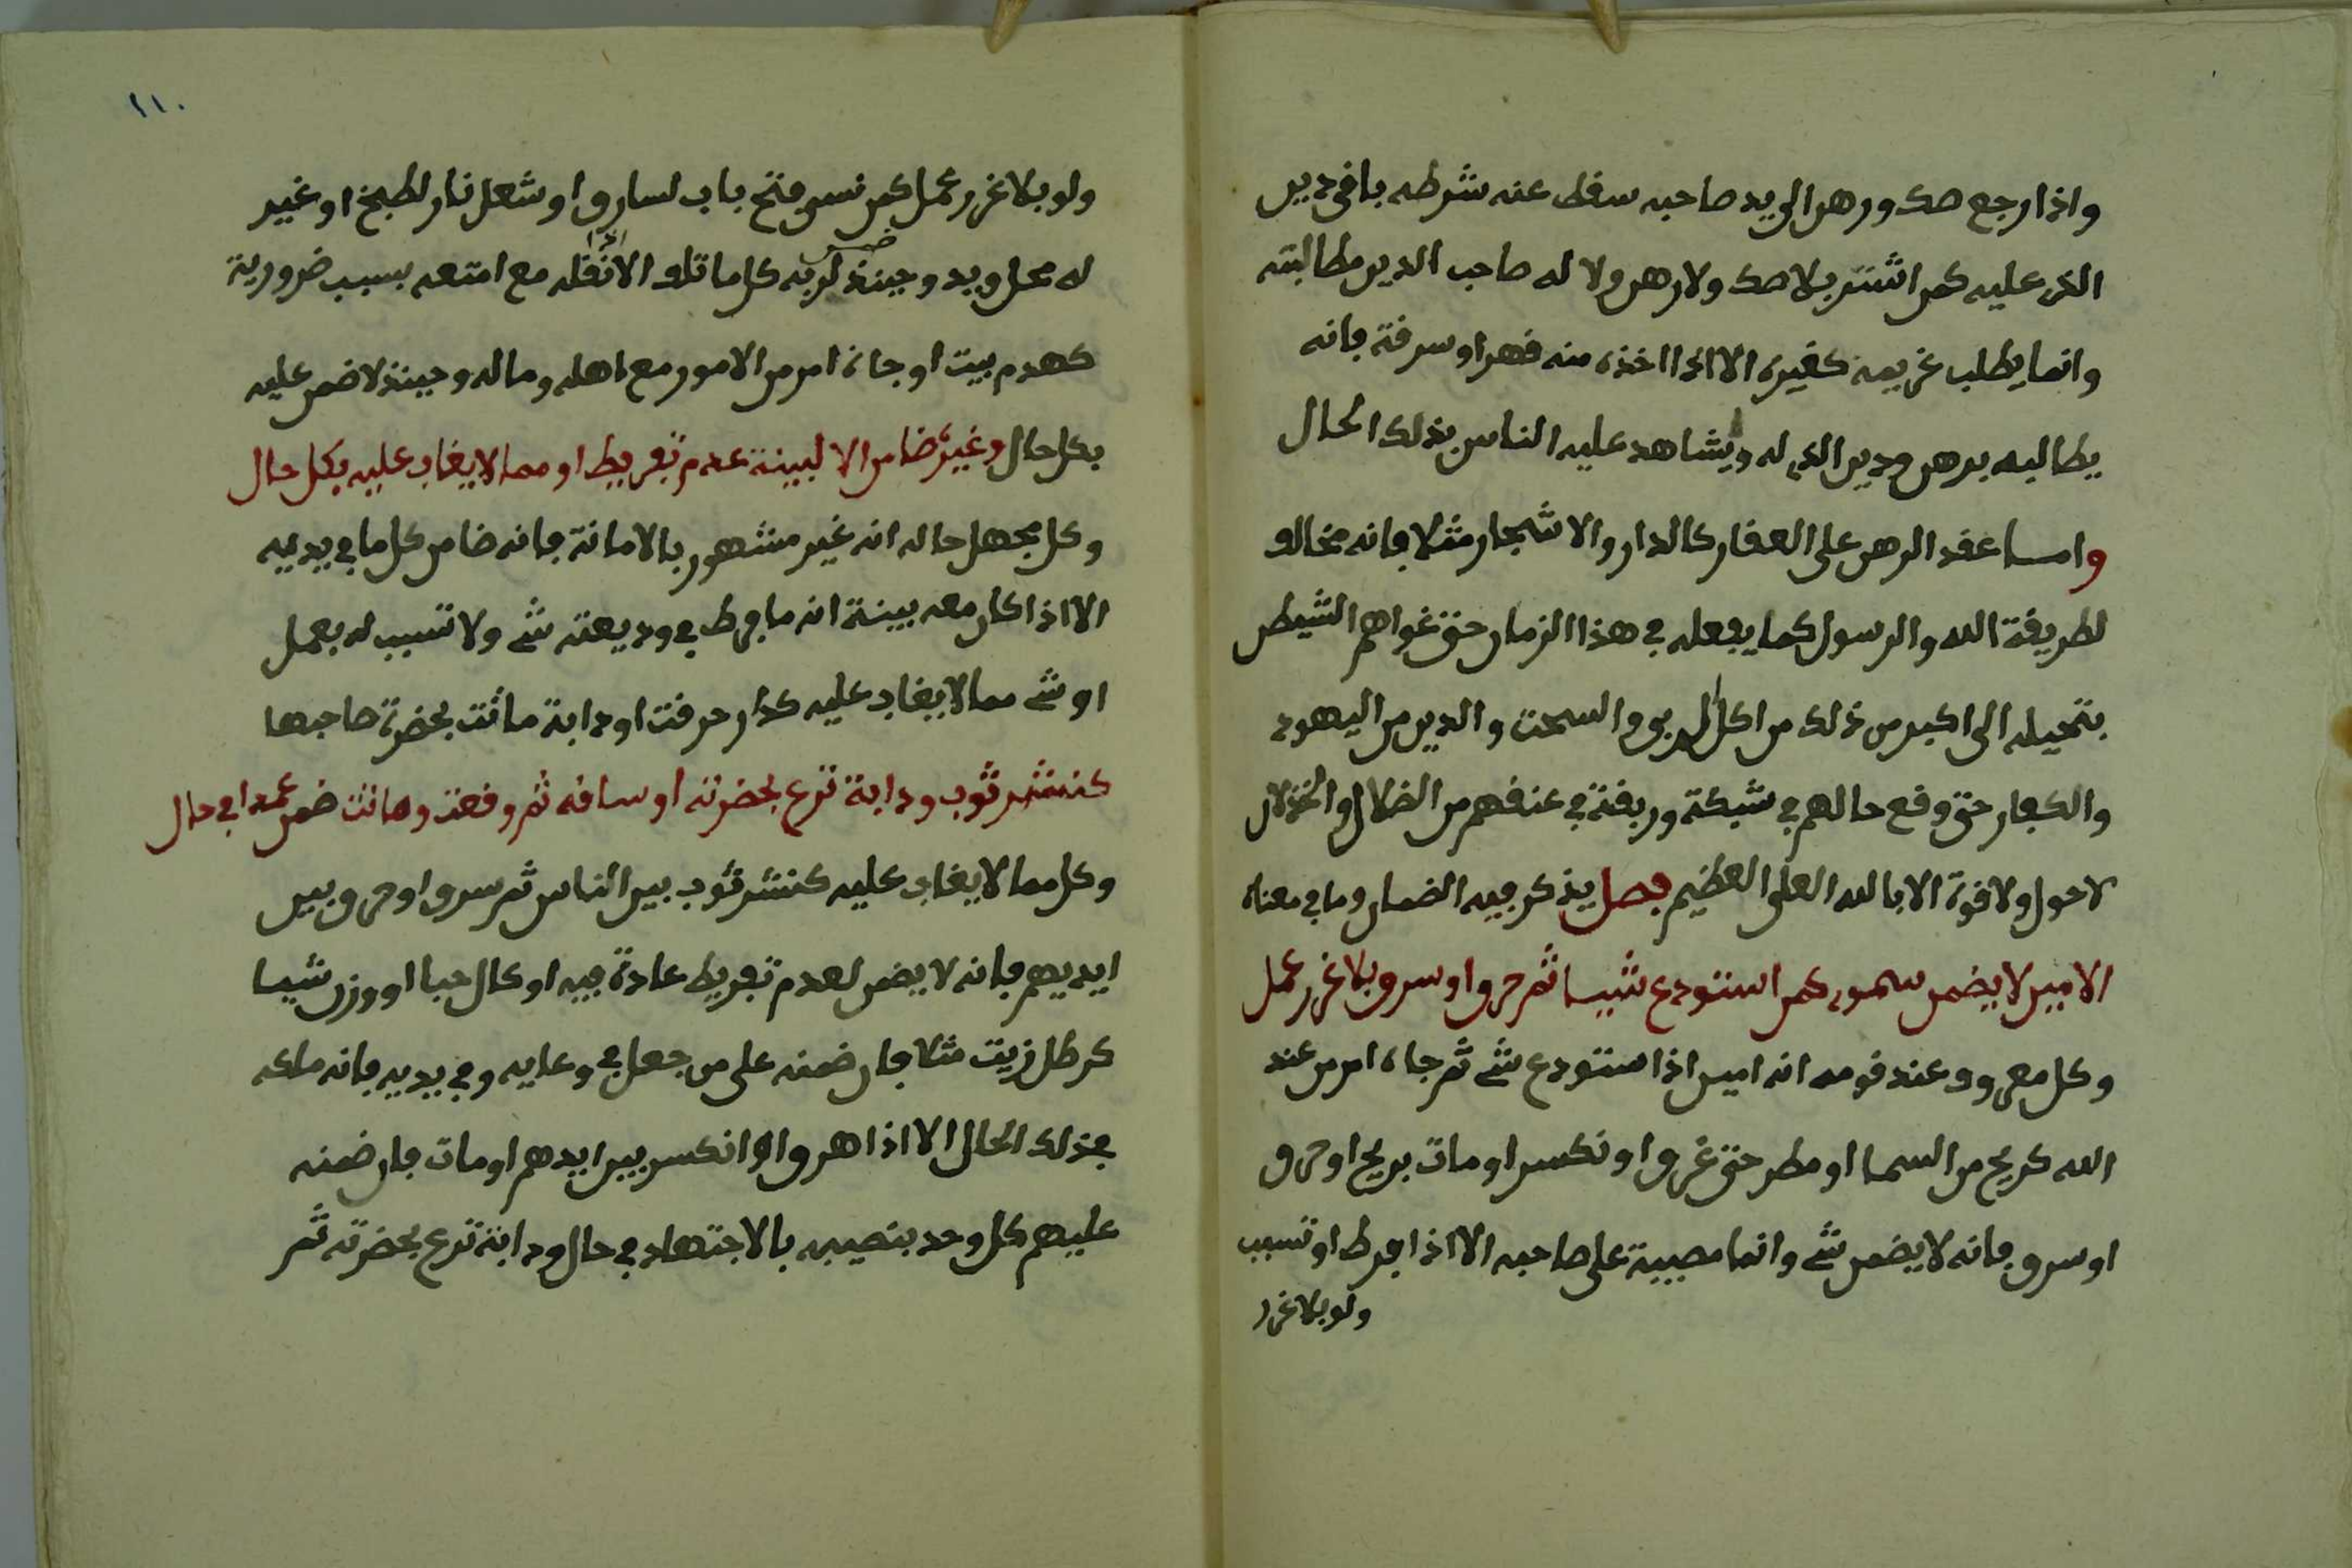 واذا رجع صك ورهن الى يد صاحبه سقط عنه شرطه بافى دين
الذى عليه كمن اشتر بلا صك ولا رهن ولا له صاحب الدين مطالبته
وانما يطلب غريمه كغيره الا اذا اخذه منه قهرا او سرقة فانه
يطالبه برهن ودين الذى له ويشاهد عليه الناس بذلك الحال
واما عقد الرهن على العقار كالدار والاشجار مثلا فانه مخالف
لطريقة الله والرسول كما يفعله في هذا الزمان حتى غواهم الشيطن
بتحيله الى اكبر من ذلك من اكل الربى والسحت والدين من اليهود
والكفار حتى وقع حالهم في شبكة وربقة في عنقهم من الضلال والخذلان
لا حول ولا قوة الا بالله العلى العظيم فصل يذكر فيه الضمان وما في معناه
الامين لا يضمن سمور كمن استودع شيئا ثم حرق او سرق بلا غرر عمل
وكل معروف عند قومه انه امين اذا استودع شئ ثم جاءه امر من عند
الله كريح من السما او مطر حتى غرق او نكسر او مات بريح او حرق
او سرق فانه لا يضمن شئ وانما مصيبة على صاحبه الا اذا فرط او تسبب
ولو بلا غرر
٢١٠
ولو بلا غرر عمل كمن نسى فتح باب لسارق او شعل نار لطبخ او غير
له محل ويد وحينئذ ضمن لربه كل ما تلف الا نقله مع امتعه بسبب ضرورية
كهدم بيت او جاءه امر من الامور مع اهله وماله وحينئذ لا ضمن عليه
بكل حال وغيره ضامن الا لبينة عدم تفريط او مما لا يغاب عليه بكل حال
وكل مجهل حاله انه غير مشهور بالامانة فانه ضامن كل ما في يديه
الا اذا كان معه بينة انه ما فرط في وديعته شئ ولا تسبب له بعمل
او شئ مما لا يغاب عليه كدار حرقت او دابة ماتت بحضرة صاحبها
كنشر ثوب ودابة ترع بحضرته او سافه ثم وقعت وماتت ضمن عمدا في حال
وكل مما لا يغاب عليه كنشر ثوب بين الناس ثم سرق او حرق بين
ايديهم فانه لا يضمن لعدم تفريط عادة فيه او كال حبا او وزن شيا
كرطل زيت مثلا فان ضمنه على من جعل في وعايه وفي يديه فانه ملكه
بذلك الحال الا اذا اهرق او انكسر بين ايدهم او مات فان ضمنه
عليهم كل وحد بنصيبه بالاجتهاد في حال ودابة ترع بحضرته ثم